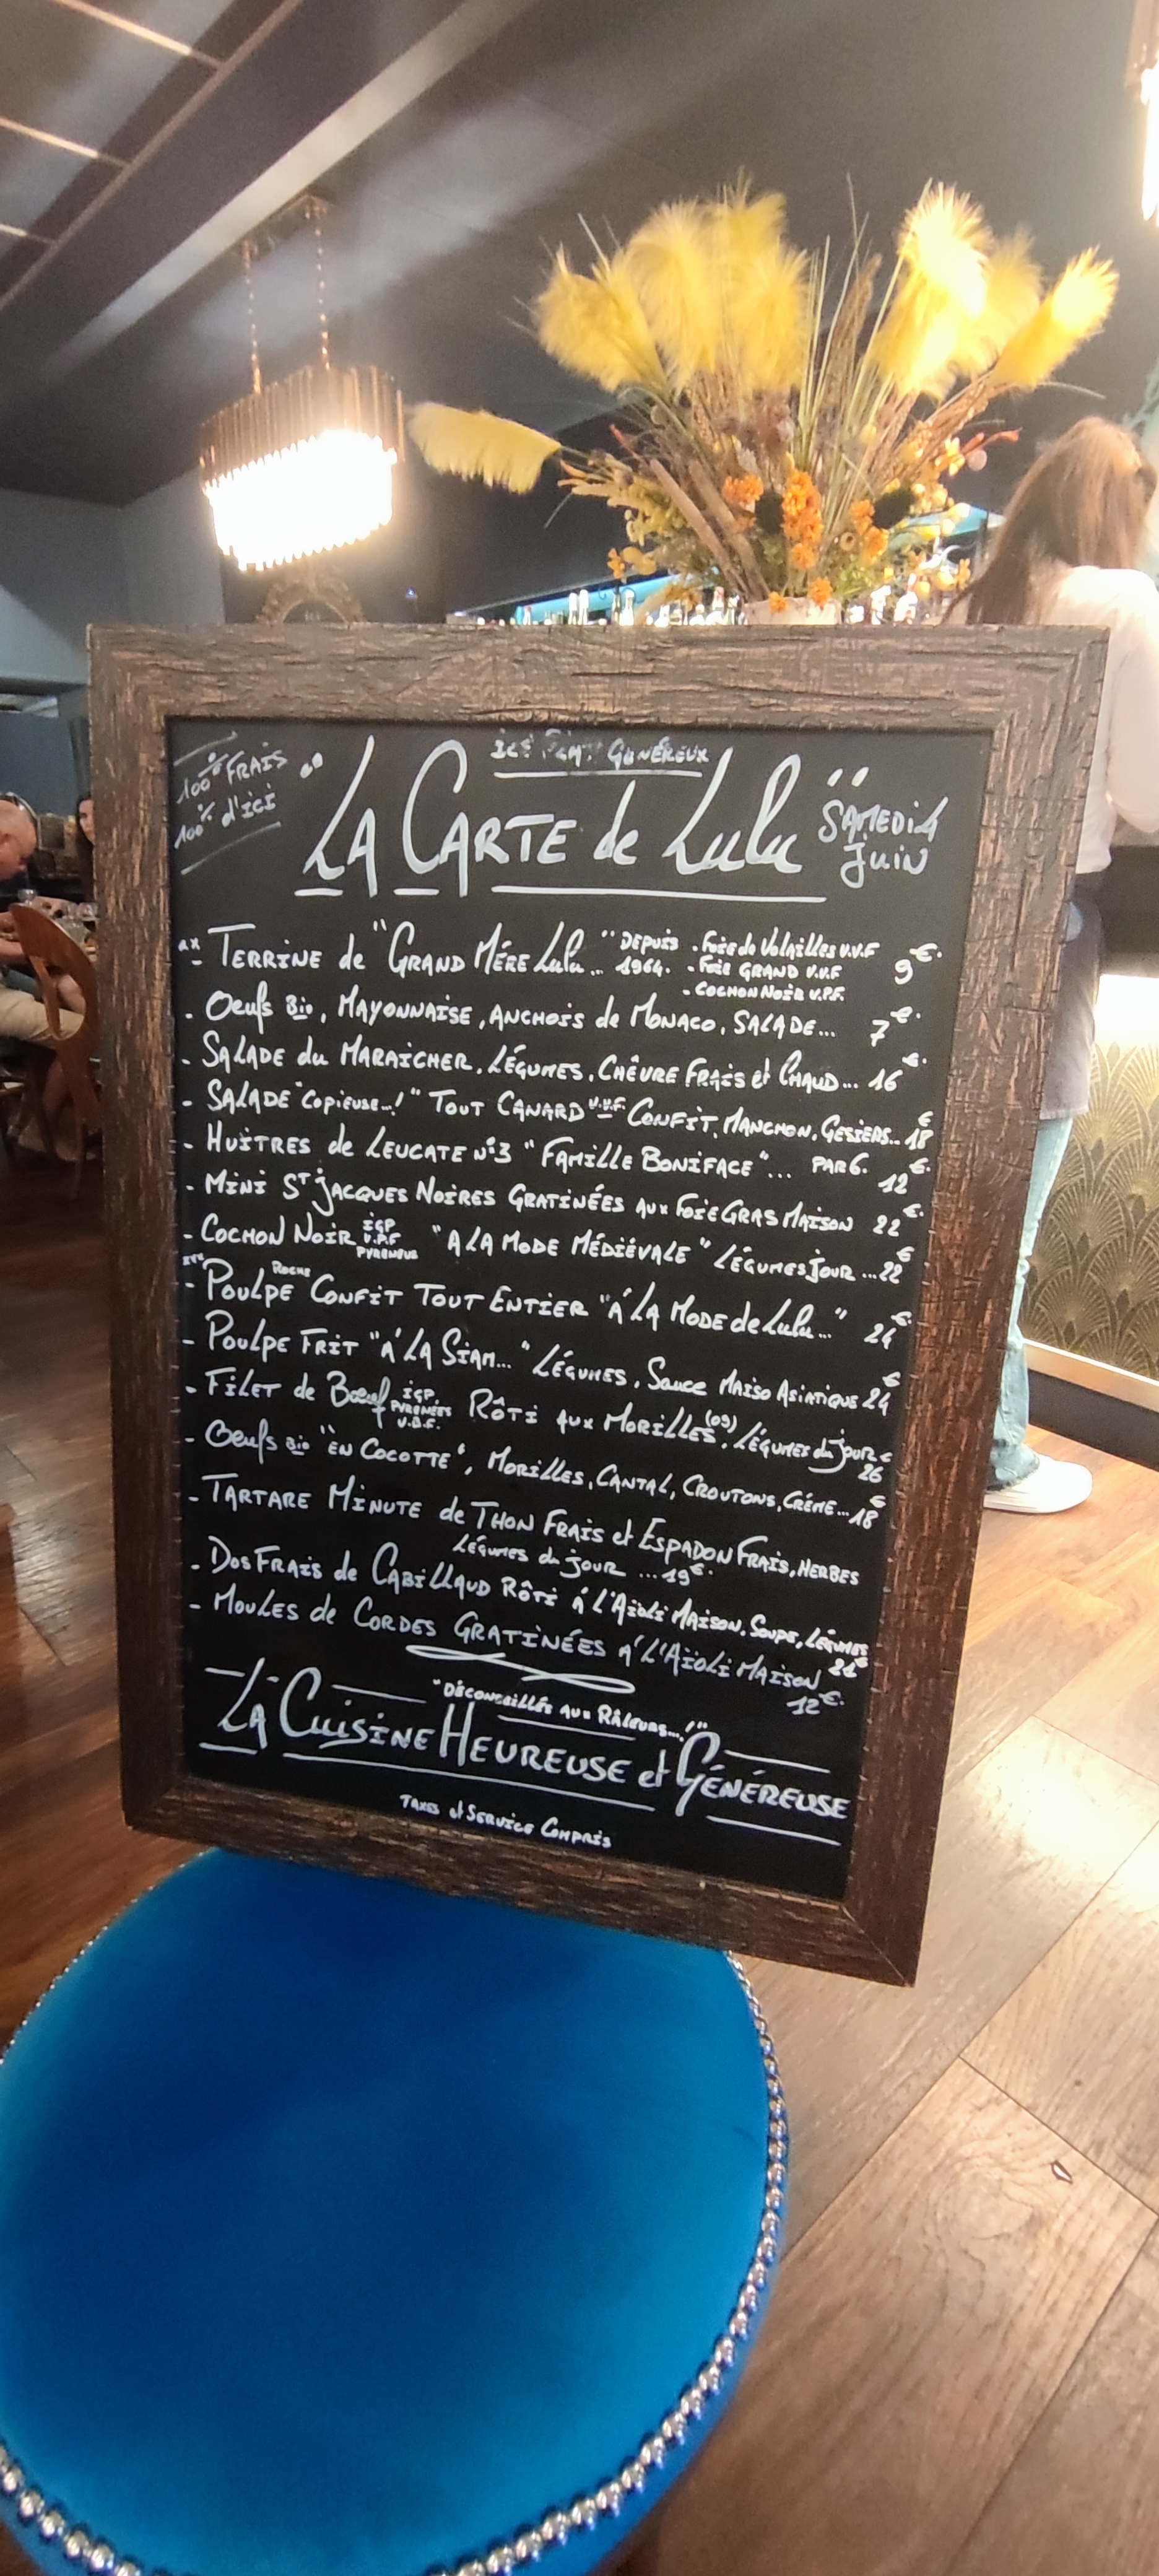 GÉNÉREUX
100% FRAIS
100% d'ici
LA CARTE de Lulu
SAMEDI 4
Juin
- TERRINE de "GRAND MÉRE Lulu..." DEPUIS 1964. - Foie de Volailles V.V.F 9€.
- Foie GRAND V.V.F
- COCHON NOIR V.P.F.
- Oeufs Bio, MAYONNAISE, ANCHOIS de MONACO, SALADE... 7€.
- SALADE du MARAICHER, LÉGUMES, CHÊVRE FRAIS et CHAUD... 16€.
- SALADE "Copieuse...!" TOUT CANARD V.V.F. CONFIT, MANCHON, GESIERS... 18€
- HUITRES de LEUCATE N°3 "FAMILLE BONIFACE"... PAR 6. 12€.
- MINI ST JACQUES NOIRES GRATINÉES AUX FOIE GRAS MAISON 22€.
- COCHON NOIR IGP V.P.F PYRENEUS "A LA MODE MÉDIÉVALE" LÉGUMES JOUR ...22€
- POULPE ROCHE CONFIT TOUT ENTIER "Á LA MODE de Lulu..." 24€.
- POULPE FRIT "Á LA SIAM..." LÉGUMES, Sauce MAISO ASIATIQUE 24€
- FILET de Boeuf IGP. PYRENÉES V.B.F. RÔTI AUX MORILLES (09), LÉGUMES du jour 26€
- Oeufs Bio "EN COCOTTE", MORILLES, CANTAL, CROUTONS, CRÉME...18€
- TARTARE MINUTE de THON FRAIS et ESPADON FRAIS, HERBES
LÉGUMES du jour ...19€.
- DOS FRAIS de CABILLAUD RÔTI Á L'AÏOLI MAISON, SOUPE, LÉGUMES
- MOULES de CORDES GRATINÉES Á L'AÏOLI MAISON
12€.
"DÉCONSEILLÉE AUX RÂLEURS...!"
LA CUISINE HEUREUSE et GÉNÉREUSE
TAXES et SERVICE COMPRIS